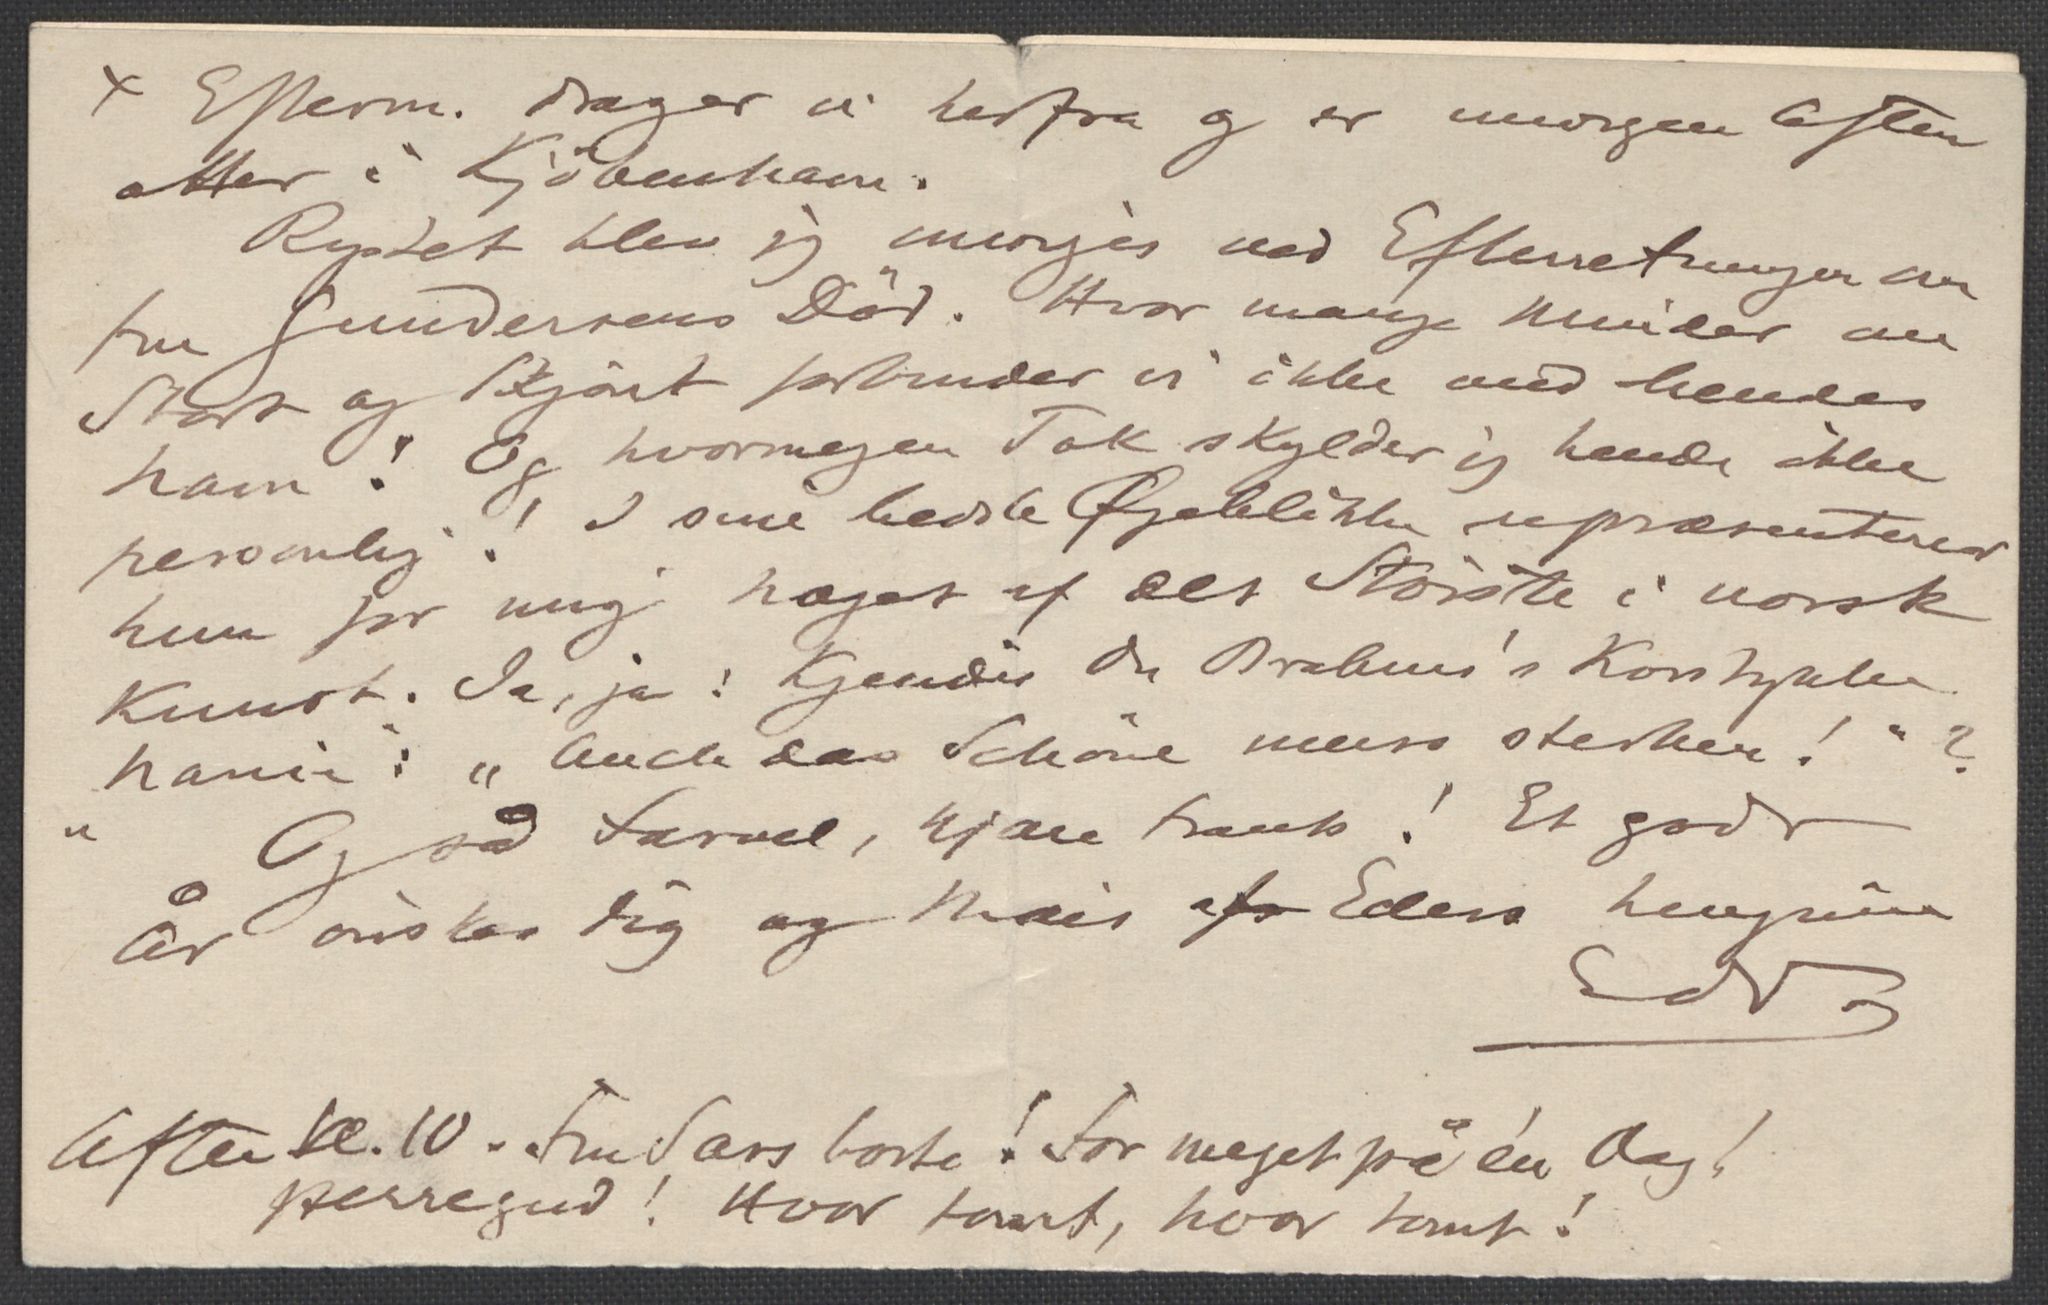 x Efterm. drager vi herfra og er imorgen Aften
atter i Kjöbenhavn.
Rystet blev jeg imorges ved Efterretningen om
Fru Gundersens Död. Hvor mange Minder om
Stort og Skjönt forbinder vi ikke med hendes
Navn! Og hvormegen Tak skylder jeg hende ikke
personlig! I sine bedste Øjeblikke repræsenterer
hun for mig noget af det Störste i norsk
Kunst. Ja, ja! Kjender du Brahms's Korstykke
"Nänie": „Auch das Schöne muss sterben!"?
Og så Farvel, kjære Frants! Et godt
År önskes dig og Nais af Eders hengivne
Edv G
Aften Kl. 10. Fru Sars borte! For meget på én Dag!
Herregud! Hvor tomt, hvor tomt!